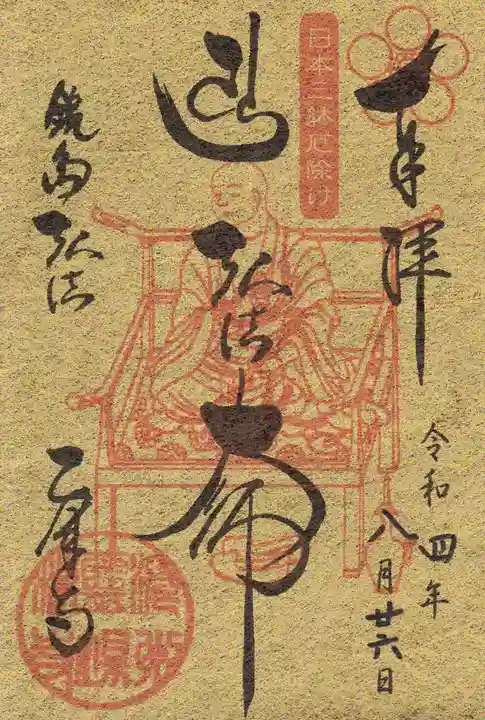 奉拝
令和四年
八月廿六日
日本三躰厄除け
弘法大師
鏡島弘法
乙津寺